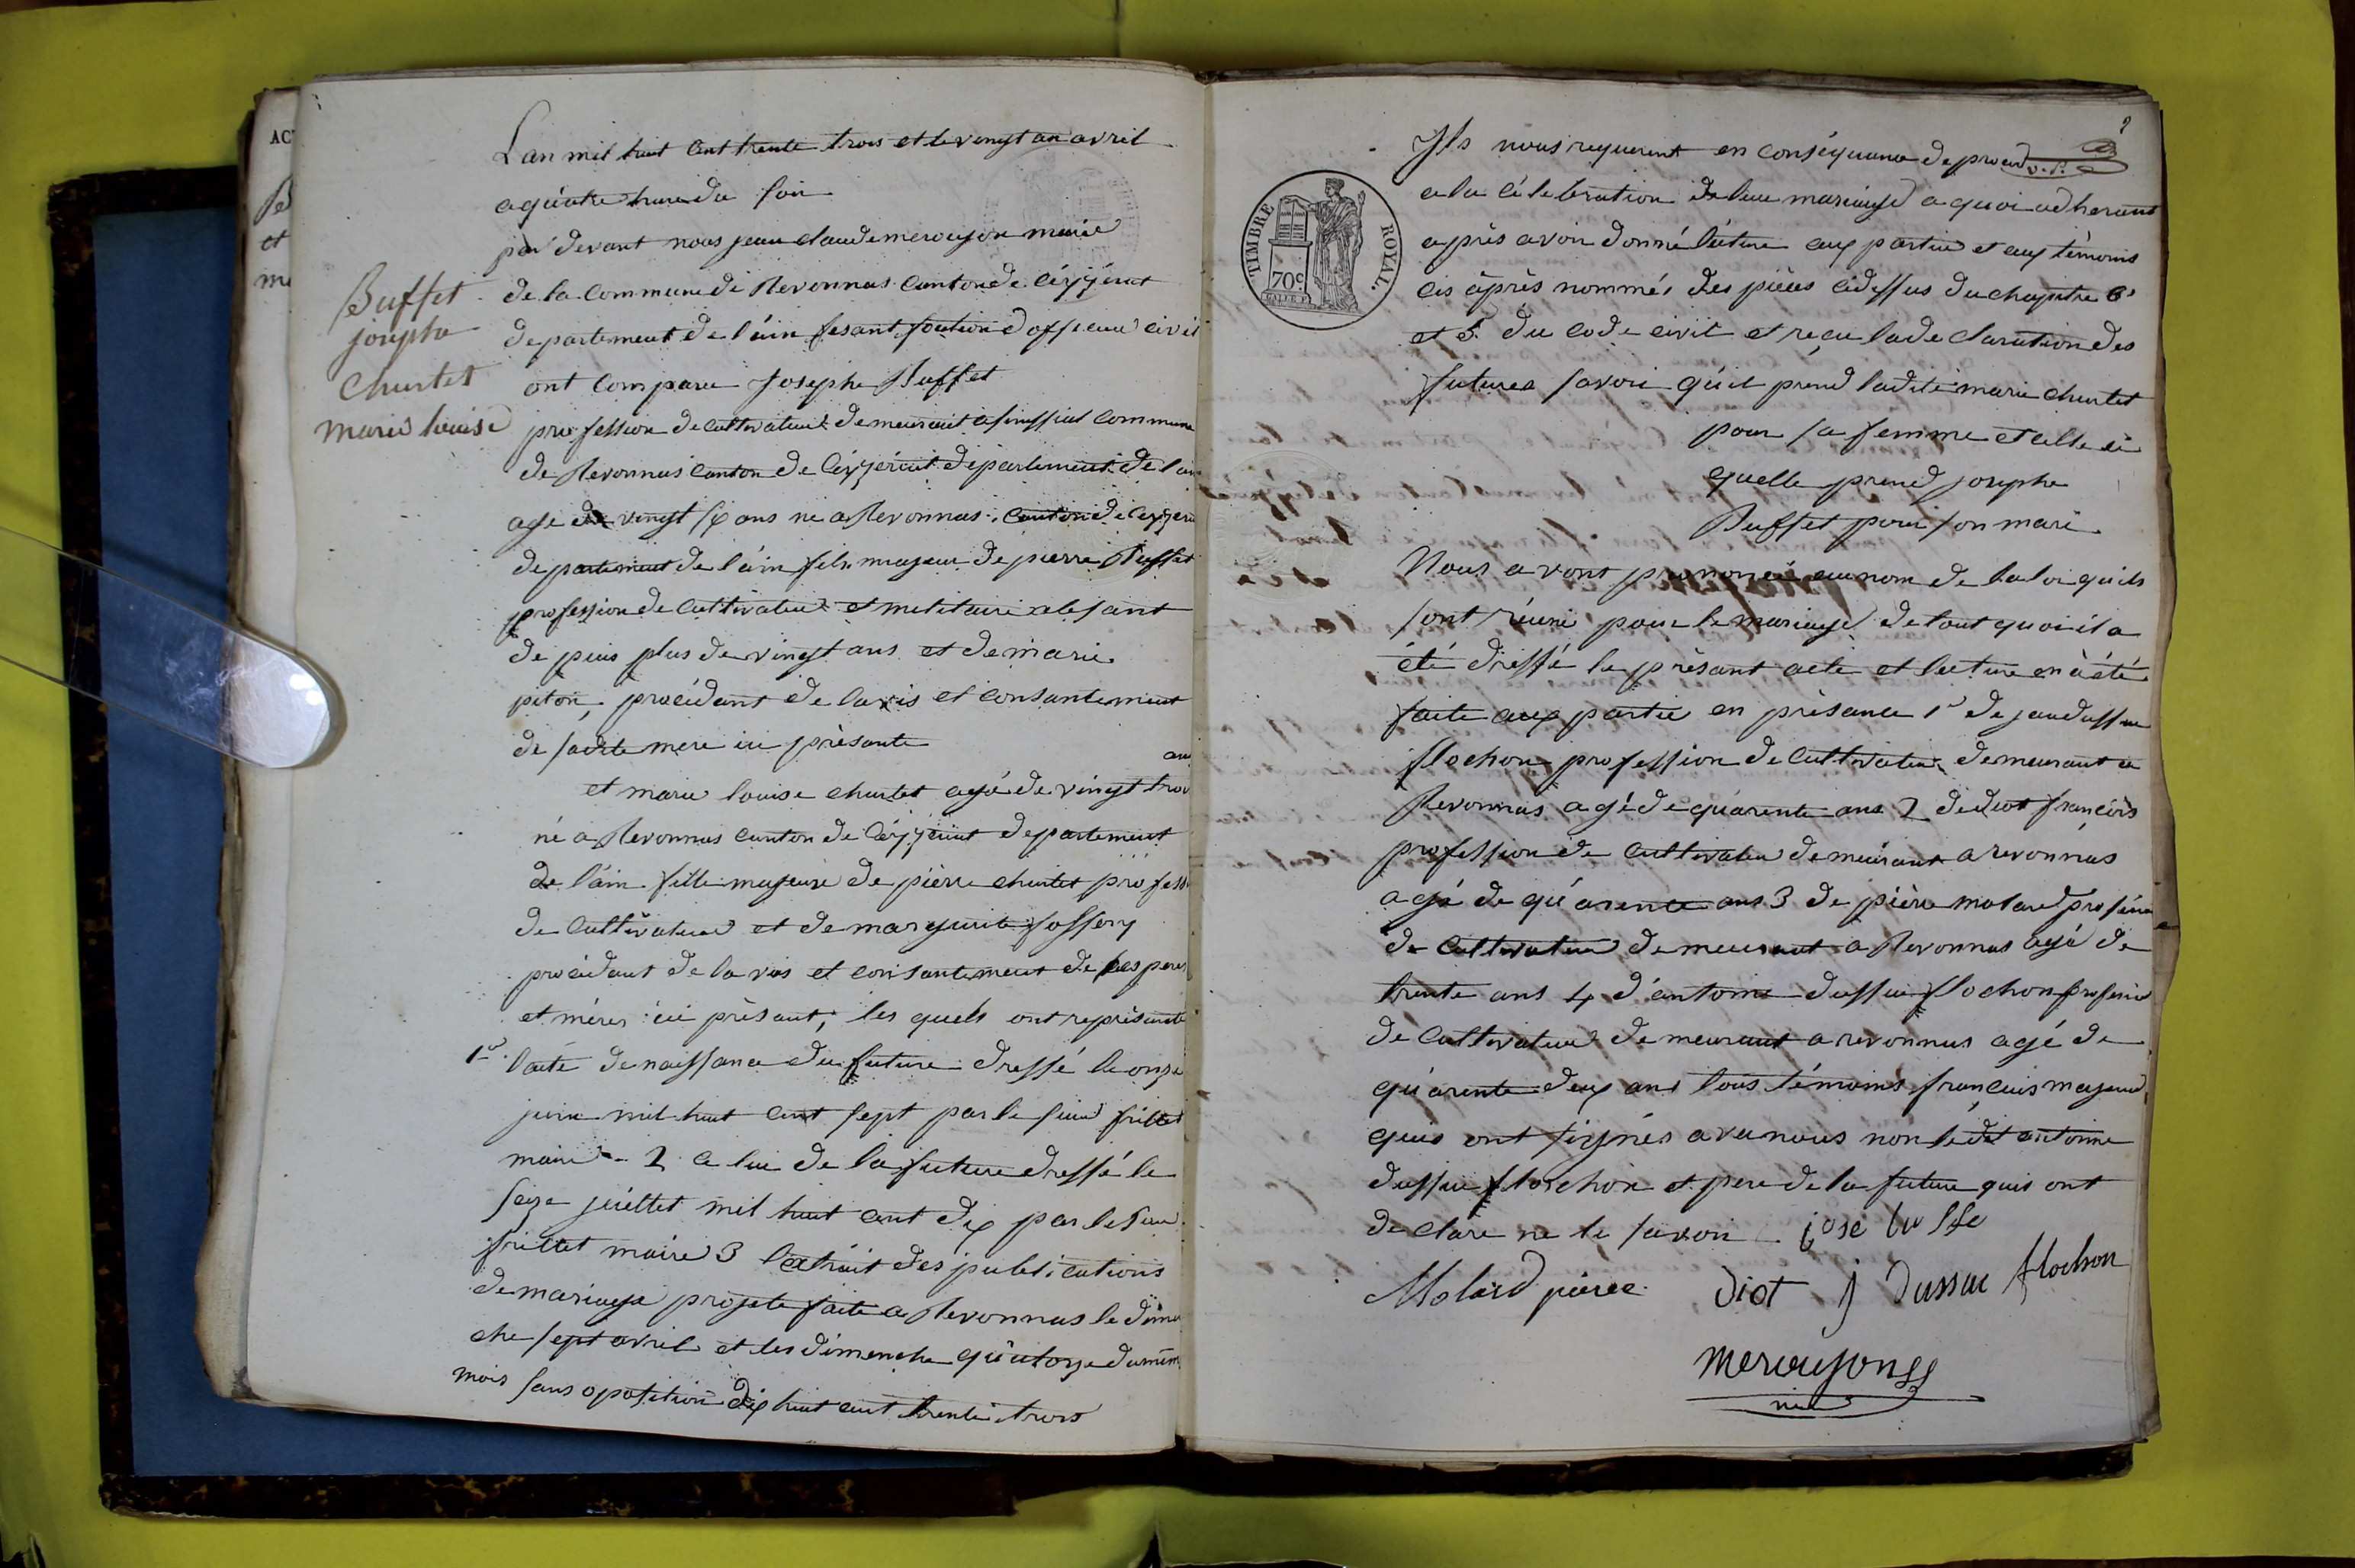 AC
et
Buffet
josephe
Churlet
marie louise
Lan mil huit Cent trente trois et le vingt un avril
a quatre heure du soir
par devant nous jean claude merougon maire
de la Commune de Revonnas Canton de Céyzériat
departement de l'ain fesant fontion d'officier civil
ont comparu Josephe Buffet
profession de Cultivateur demeurant a commune
de Revonnas Canton de Céyzériat département de l'ain
age de vingt six ans né a Revonnas Canton de Ceyzeria
departement de l'ain fils majeur de pierre Buffet
profession de Cultivateur et militaire absant
depuis plus de vingt ans et de marie
piton, procédant de lavis et consantement
de sadite mere ici présante
et marie louise churlet agé de vingt trois ans
né a Revonnas canton de Céyzériat departement
de l'ain fille majeure de pièrre churlet profess
de Cultivateur et de marguerite
procédant de lavis et consantement de ses peres
et mères ici présant, les quels ont représenté
1º lacte de naissance du future dressé le onze
juin mil huit cent sept par le sieur frillet
maire 2 celui de la future dressé le
seize juillet mil huit cent dix par le sieur
frillet maire 3 lextrait des publications
de mariage projeté faite a Revonnas le diman
che sept avril et les dimenche quatorze du mêm
mois sans oposition dix huit cent trente trois
TIMBRE ROYAL.
70c
Ils nous requerent en conséquence de proced
a la célébration de leur mariage a quoi adherant
après avoir donné lecture aux partie et aux témoins
cis après nommés des pièces cidessus du chapitre 6
et 5 du code civil et reçu la declaration des
futures savoir qu'il prend ladite marie churlet
pour sa femme et celle ci
quelle prend josephe
Buffet pour son mari
Nous avont prononcé au nom de la loi quils
sont réuni pour le mariage de tout quoi il a
été dressé le présant acte et lecture en a été
faite aux partie en présance 1º de jean dussue
flochon profession de Cultivateur demeurant a
Revonnas agé de quarente ans 2 de diot françois
profession de Cultivateur demeurant a revonnas
agé de quarente ans 3 de pièrre molard profesion
de Cultivateur demeurant a Revonnas agé de
trente ans 4 d'antoine dussue flochon profesion
de Cultivateur demeurant a revonnas agé de
quarente deux ans tous témoins françcis majeur
quis ont signés avec nous non ledit antoine
dussue flochon et pere de la future quis ont
declare ne le savoir
Molard pierre diot j Dussue flochon
merougon